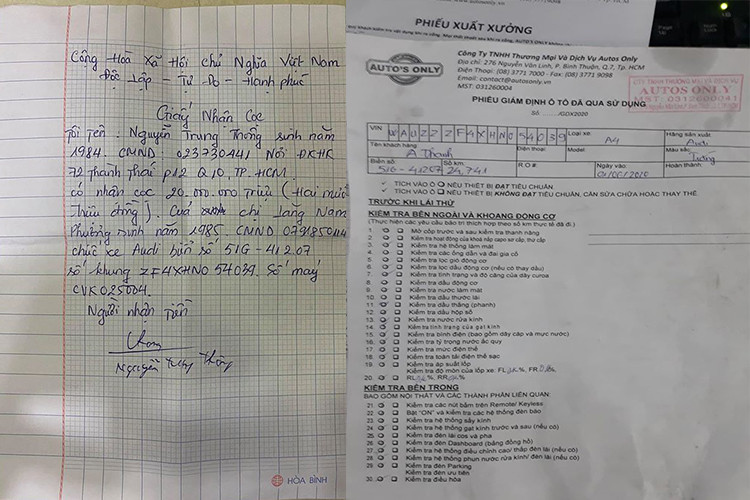 Cộng Hoà Xã Hội chủ Nghĩa Việt Nam
Độc Lập - Tự Do - Hạnh phúc
Giấy Nhận Cọc
Tôi tên: Nguyễn Trung Thông sinh năm
1984. CMND: 023730441 Nơi ĐKHK
72 Thành Thái p12 Q10, TP. HCM.
có nhận cọc 20.000.000 triệu (Hai mươi
Triệu đồng). Của chị Tăng Nam
Phương sinh năm 1985. CMND
chiếc xe Audi biển số 51G-412.07
số khung ZF4XHN0 54039. Số máy
CVK025004.
Người nhận tiền
Nguyễn Trung Thông
HÒA BÌNH
PHIẾU XUẤT XƯỞNG
AUTO'S ONLY
Công Ty TNHH Thương Mại Và Dịch Vụ Autos Only
Địa chỉ: 276 Nguyễn Văn Linh, P. Bình Thuận, Q.7, Tp. HCM
Điện Thoại: (08) 3771 7000 - Fax: (08) 3771 9098
Email: contact@autosonly.vn
MST: 031260004
CTY TNHH THƯƠNG MẠI VÀ DỊCH VỤ
AUTOS ONLY
MST: 0312600041
PHIẾU GIÁM ĐỊNH Ô TÔ ĐÃ QUA SỬ DỤNG
Số: /GDX2020
VIN WAUZZZF4XHN054039 Loại xe: A4 Hãng sản xuất Audi
Tên khách hàng A Thanh Điện thoại: Model: Màu sắc: Trắng
Biển số: 51G-41207 Số km: 24.741 R.O #: Ngày vào: Hoàn thành:
✓ TÍCH VÀO Ô NẾU THIẾT BỊ ĐẠT TIÊU CHUẨN
✓ TÍCH VÀO Ô NẾU THIẾT BỊ KHÔNG ĐẠT TIÊU CHUẨN, CẦN SỬA CHỮA HOẶC THAY THẾ.
TRƯỚC KHI LÁI THỬ
KIỂM TRA BÊN NGOÀI VÀ KHOANG ĐỘNG CƠ
(Thực hiện các yêu cầu bảo trì thích hợp theo số km thực tế đã đi.)
1 Mở cốp trước và sau kiểm tra thanh nâng
2 Kiểm tra hoạt động của khoá nắp capo sơ cấp, thứ cấp
3 Kiểm tra hệ thống làm mát
4 Kiểm tra các ống dẫn và đai gia cố
5 Kiểm tra lọc gió động cơ
6 Kiểm tra lọc dầu động cơ (nếu có thay dầu)
7 Kiểm tra tình trạng và độ căng của dây curoa
8 Kiểm tra dầu động cơ
9 Kiểm tra nước làm mát
10 Kiểm tra dầu thước lái
11 Kiểm tra dầu thắng (phanh)
12 Kiểm tra dầu hộp số
13 Kiểm tra nước rửa kính
14 Kiểm tra tình trạng của gạt kính
15 Kiểm tra bình điện (bao gồm dây cáp và mực nước)
16 Kiểm tra tỷ trọng nước ắc quy
17 Kiểm tra mức điện thế
18 Kiểm toàn tải điện thế sạc
19 Kiểm tra áp suất lốp
Kiểm tra độ mòn của lốp xe: FL %, FR %
20 RL %, RR %
KIỂM TRA BÊN TRONG
BAO GỒM NỘI THẤT VÀ CÁC THÀNH PHẦN LIÊN QUAN:
21 Kiểm tra các nút bấm trên Remote/ Keyless
22 Bật "ON" và kiểm tra các hệ thống đèn báo
23 Kiểm tra hệ thống sấy kính
24 Kiểm tra hệ thống gạt kính trước và sau (nếu có)
25 Kiểm tra đèn lái cos và pha
26 Kiểm tra đèn Dashboard (bảng đồng hồ)
27 Kiểm tra hệ thống điều chỉnh cao/ thấp đèn lái (nếu có)
28 Kiểm tra hệ thống phun nước rửa kính/ đèn lái (nếu có)
29 Kiểm tra đèn Parking
Kiểm tra đèn ưu tiên
30 Kiểm tra điều hòa